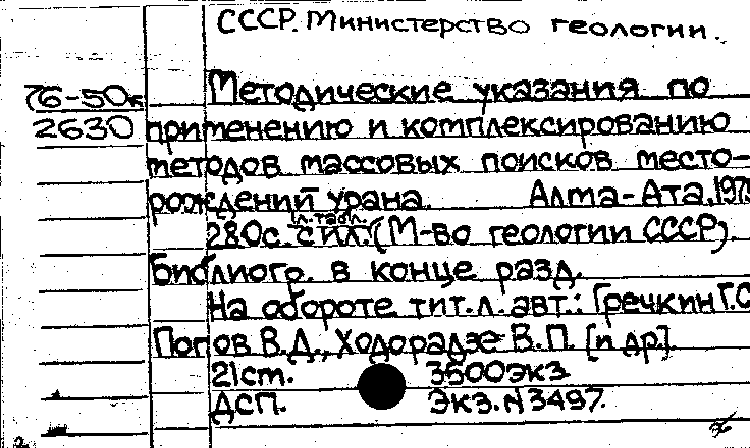 СССР. Министерство геологии.
76-50к Методические указания по
2630 применению и комплексированию
методов массовых поисков место-
рождений урана. Алма-Ата, 197
1л. табл.
280с. с ил. (М-во геологии СССР).
Библиогр. в конце разд.
На обороте тит. л. авт.: Гречкин Г.С
Попов В.Д., Ходорадзе В.П. [и др].
21см. 3500экз
ДСП. Экз. N 3497.